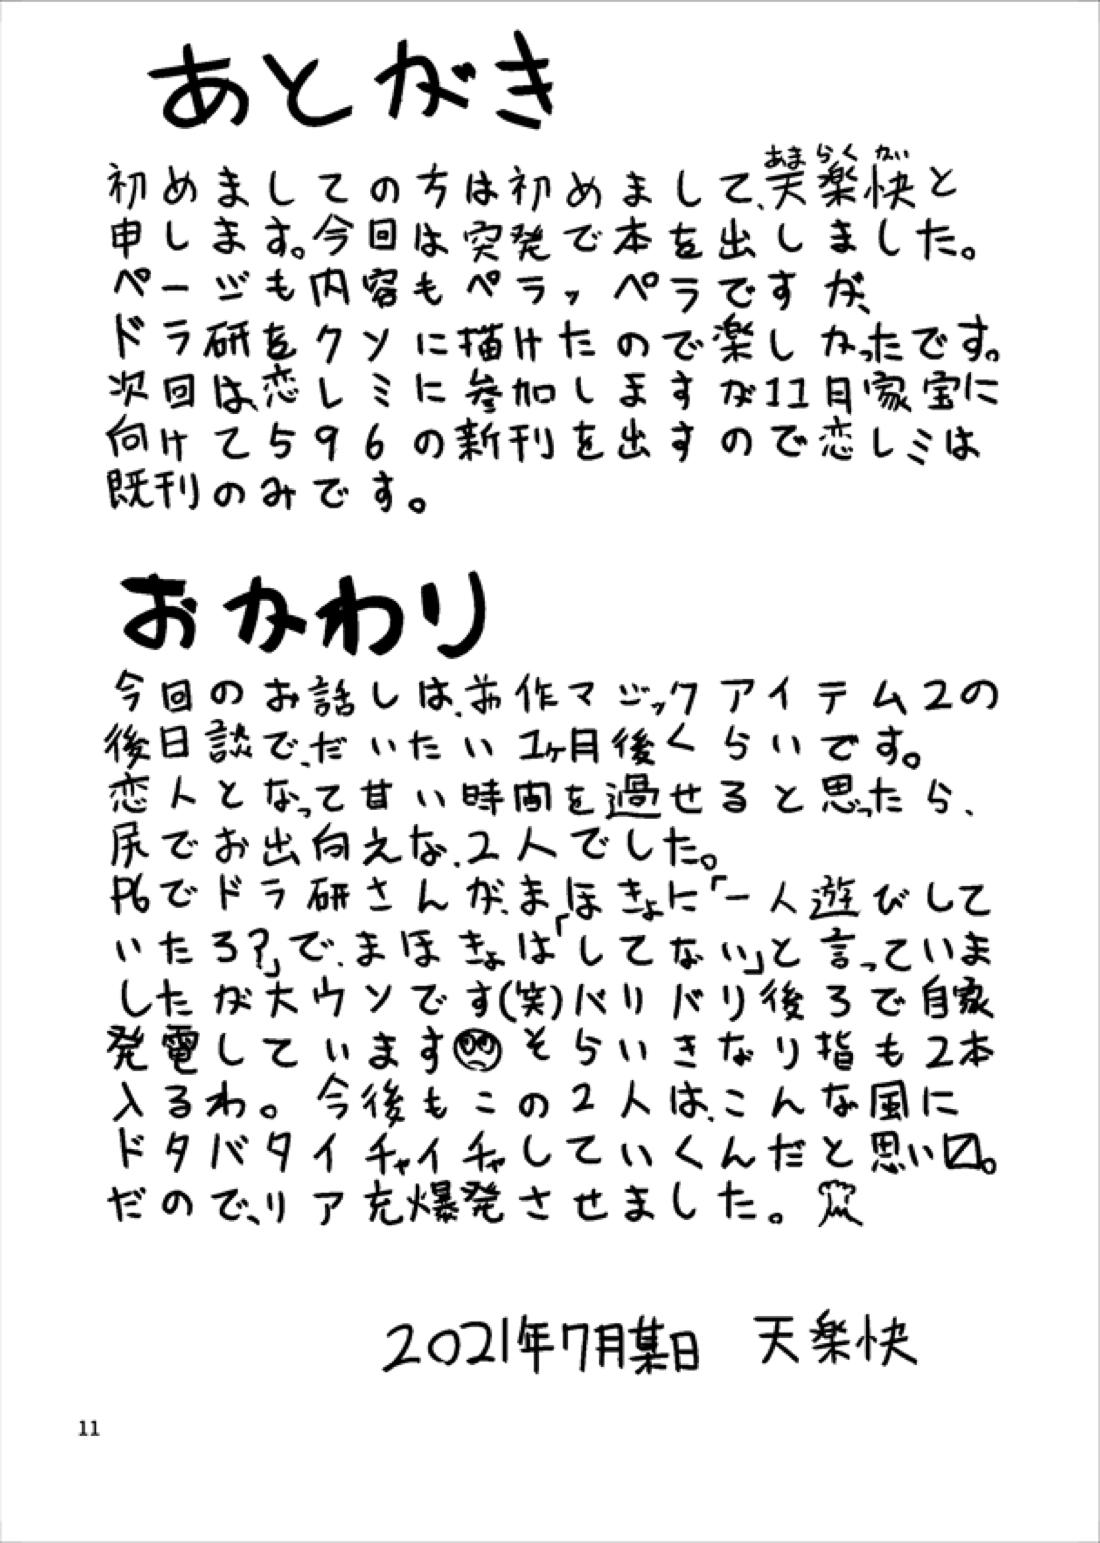 あとがき
あまらくかい
初めましての方は初めまして、天楽快と
申します。今回は突発で本を出しました。
ページも内容もペラッペラですが、
ドラ研をクソに描けたので楽しかったです。
次回は、恋レミに参加しますが11日家宝に
向けて596の新刊を出すので恋レミは
既刊のみです。
おかわり
今回のお話しは、前作マジックアイテム2の
後日談で、だいたい1ヶ月後くらいです。
恋人となって甘い時間を過せると思ったら、
尻でお出向えな、2人でした。
P6でドラ研さんが、まほきょに「一人遊びして
いたろ?」で、まほきょは「してない」と言っていま
したが大ウソです(笑)バリバリ後ろで自家
発電しています そらいきなり指も2本
入るわ。今後もこの2人は、こんな風に
ドタバタイチャイチャしていくんだと思い〼。
だので、リア充爆発させました。
2021年7月某日 天楽快
11